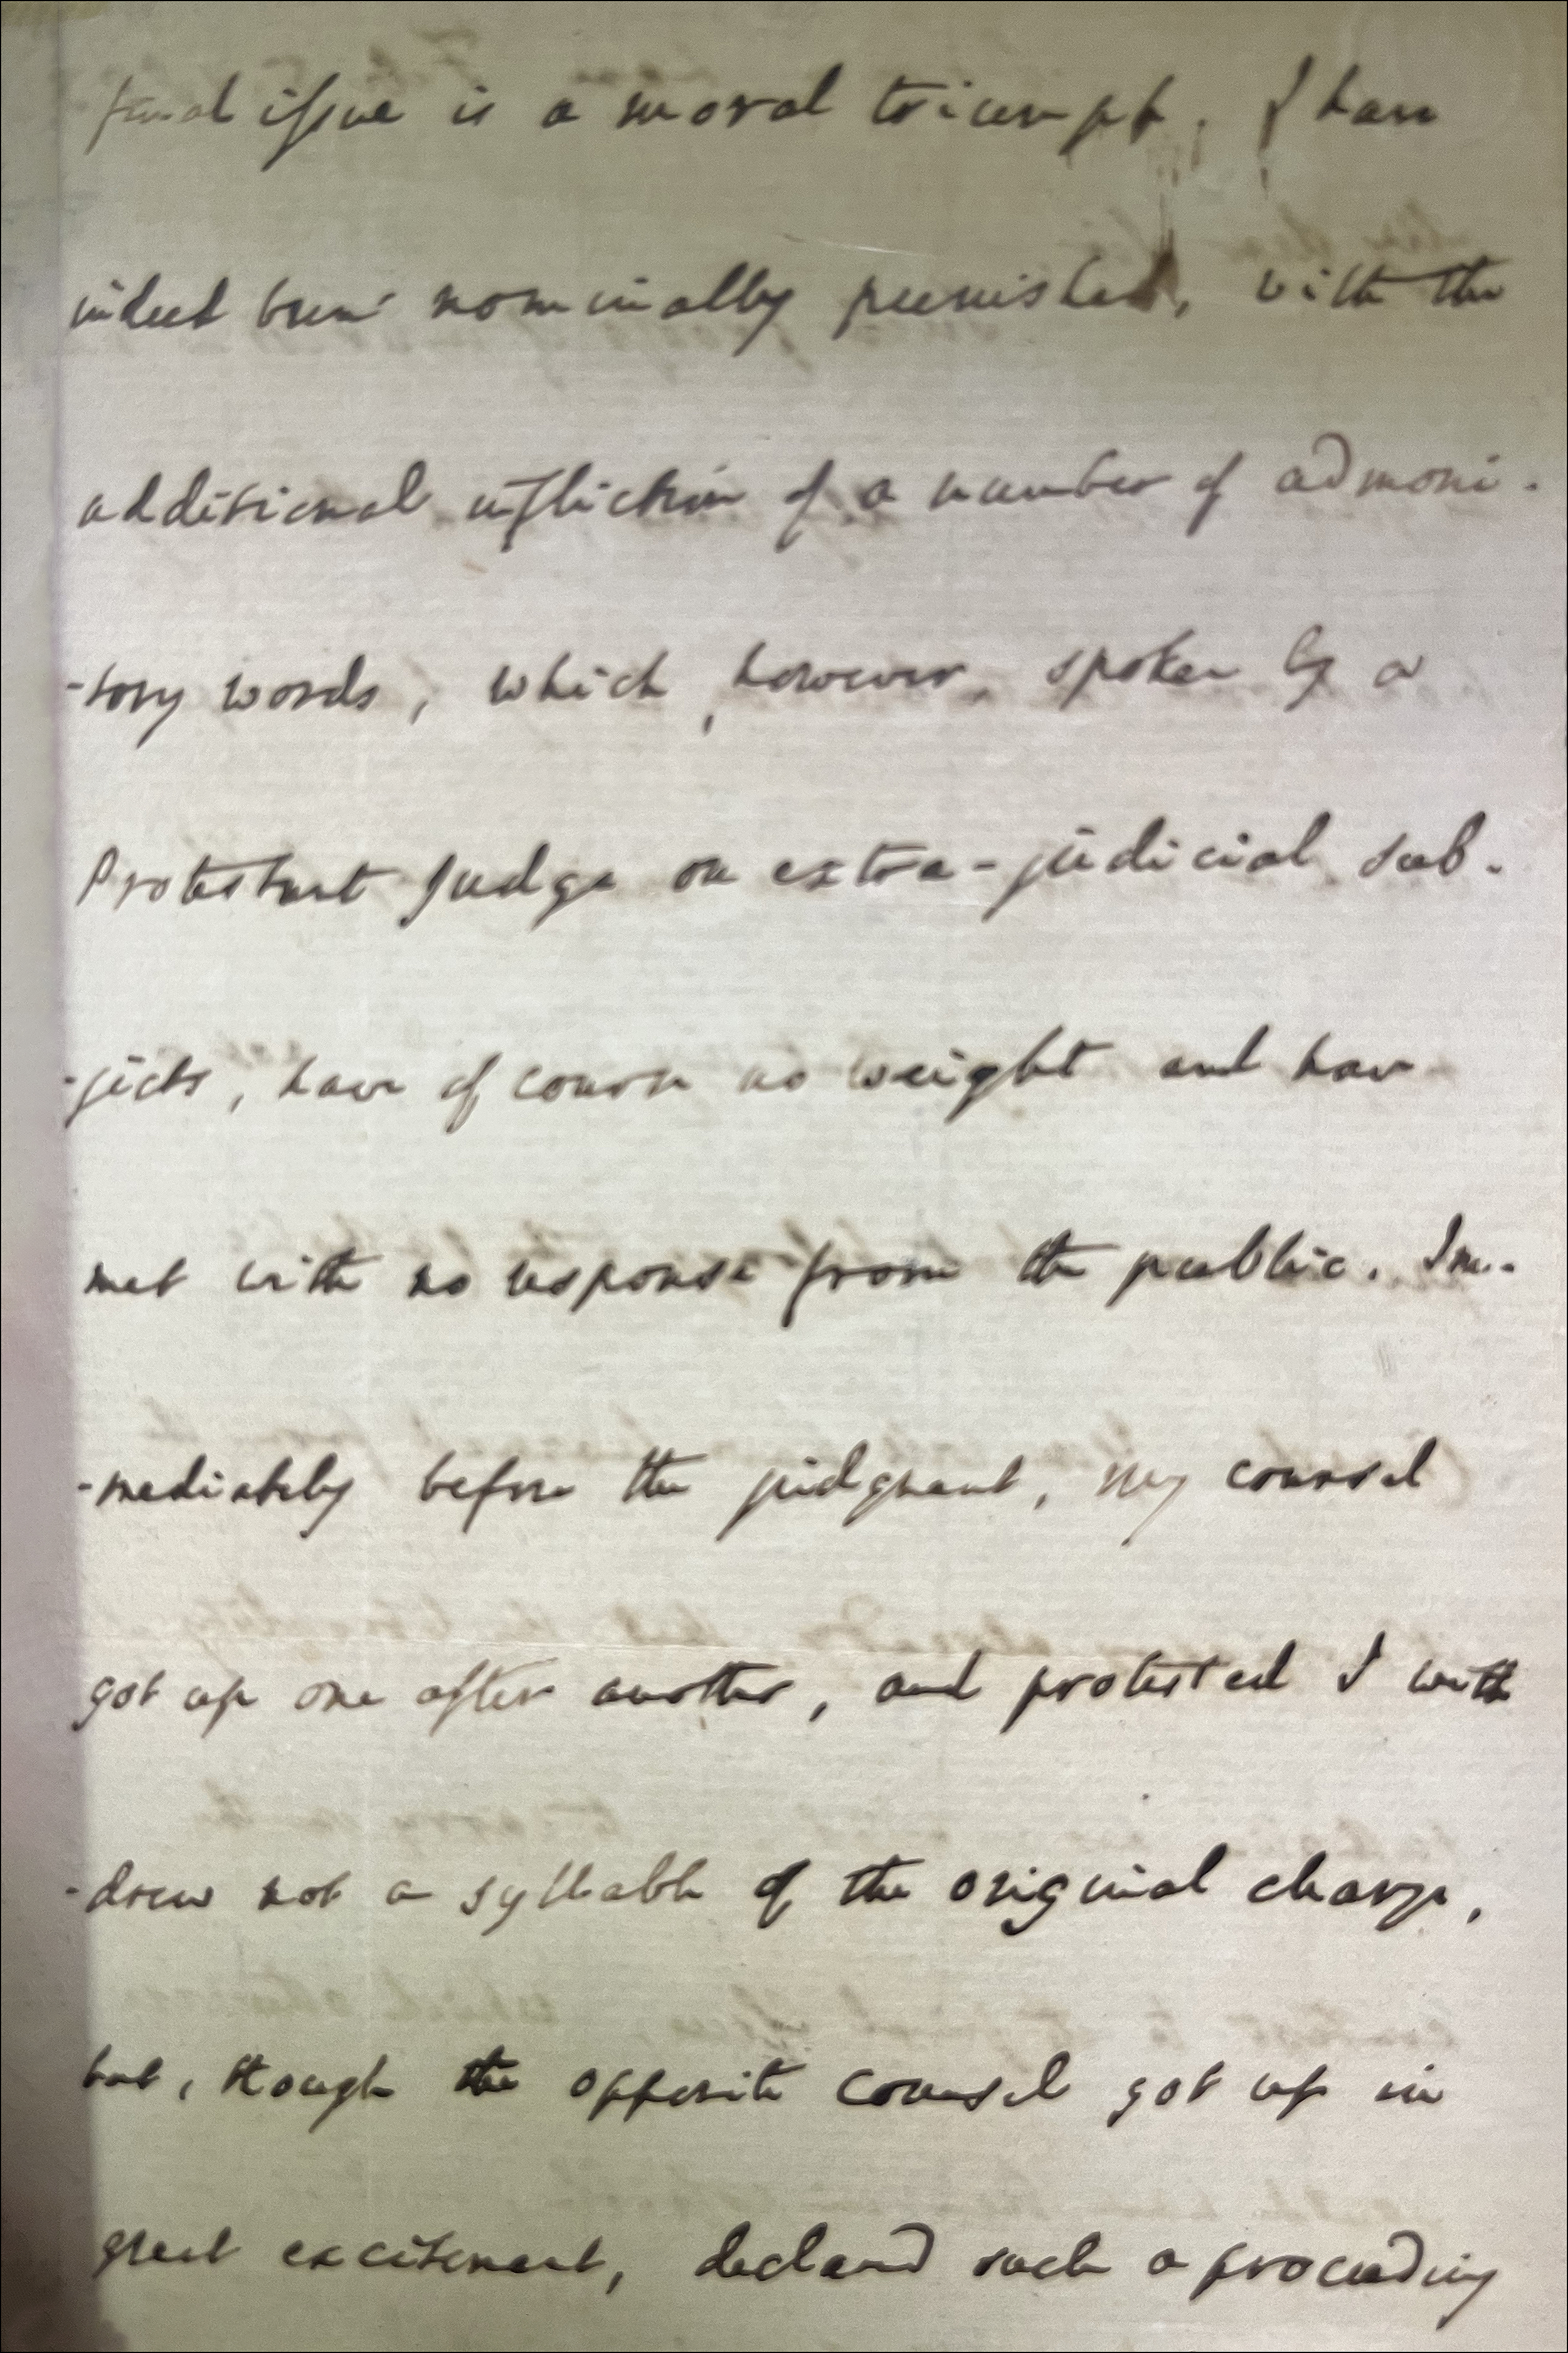 final issue is a moral triumph. I have
indeed been nominally punished, with the
additional infliction of a number of admoni-
-tory words, which, however, spoken by a
Protestant Judge on extra-judicial sub-
-jects, have of course no weight and have
met with no response from the public. Im-
-mediately before the judgment, my counsel
got up one after another, and protested I with
-drew not a syllable of the original charge,
but, though the opposite counsel got up in
great excitement, declared such a proceeding